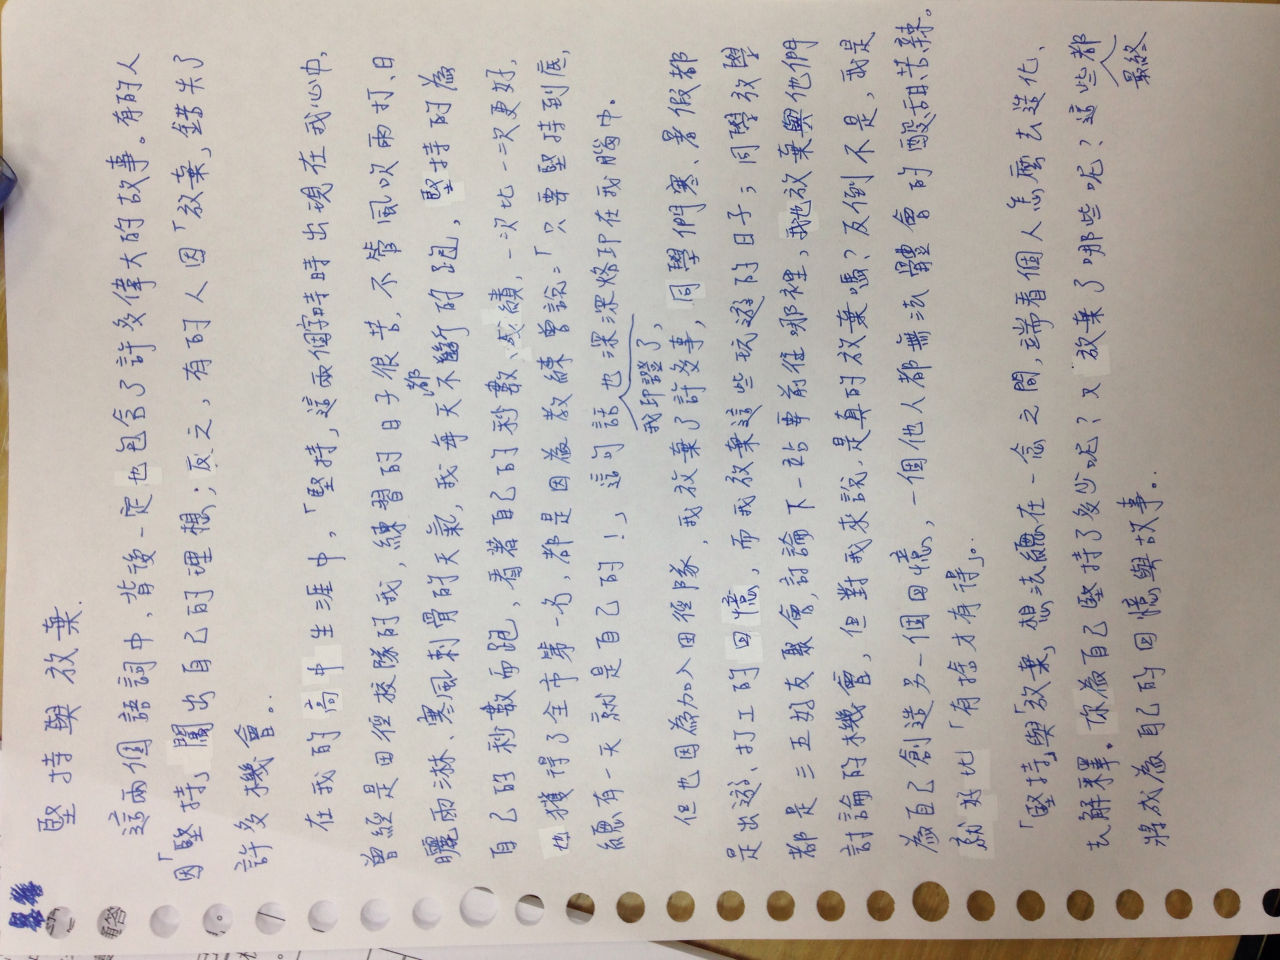 堅持與放棄.
這兩個語詞中,背後一定也包含了許多偉大的故事。有的人
因「堅持」闖出自己的理想;反之,有的人因「放棄」錯失了
許多機會。
在我的高中生涯中,「堅持」這兩個字時時出現在我心中,
曾經是田徑校隊的我,練習的日子很苦,不管風吹雨打、日
曬雨淋、寒風刺骨的天氣,我每天都不斷的跑,堅持的為
自己的秒數而跑,看著自己的秒數、成績,一次比一次更好,
也獲得了全市第一名,都是因為教練曾說:「只要堅持到底,
總有一天就是自己的!」這句話我印證了,也深深烙印在我腦中。
但也因為加入田徑隊,我放棄了許多事,同學們寒、暑假都
是出遊、打工的回憶,而我放棄這些玩遊的日子;同學放學
都是三五好友聚會,討論下一站要前往哪裡,我也放棄與他們
討論的機會,但對我來說,是真的放棄嗎?反倒不是,我是
為自己創造另一個回憶,一個他人都無法體會的酸甜苦辣。
就好比「有捨才有得」。
「堅持」與「放棄」想法總在一念之間,端看個人怎麼去造化、
去解釋。你為自己堅持了多少呢?又放棄了哪些呢?這些最終都
將成為自己的回憶與故事。